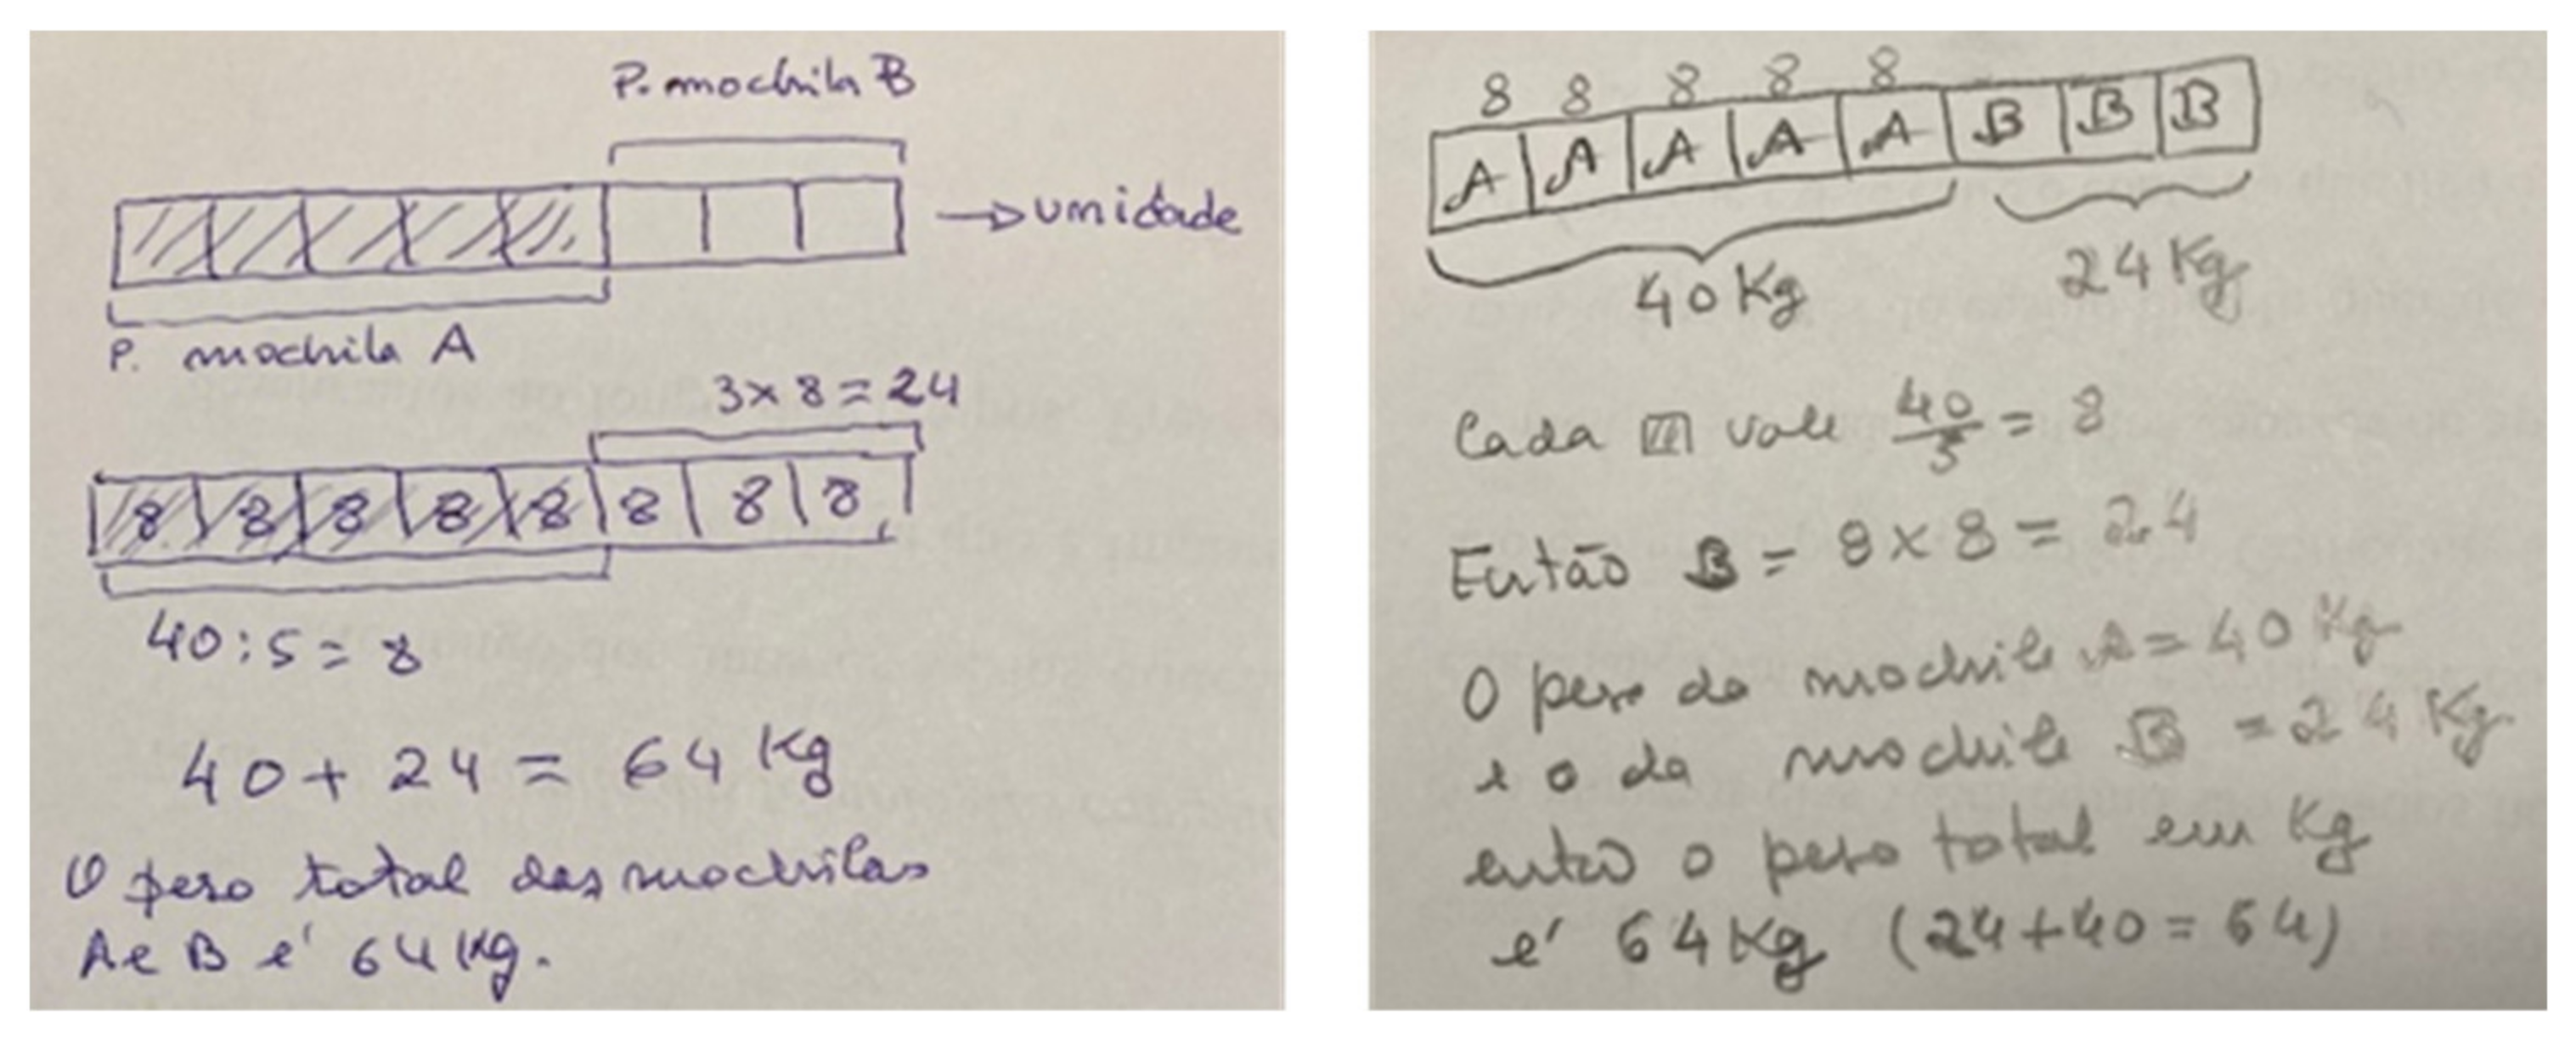 P. mochila B
→ unidade
P. mochila A
3 x 8 = 24
8 8 8 8 8 8 8 8
40 : 5 = 8
40 + 24 = 64 Kg
O peso total das mochilas
A e B é 64 Kg.
8 8 8 8 8
A A A A A B B B
40 Kg 24 Kg
Cada vale 40/5 = 8
Então B = 8 x 8 = 24
O peso da mochila A = 40 Kg
e o da mochila B = 24 Kg
então o peso total em Kg
é 64 Kg (24 + 40 = 64)